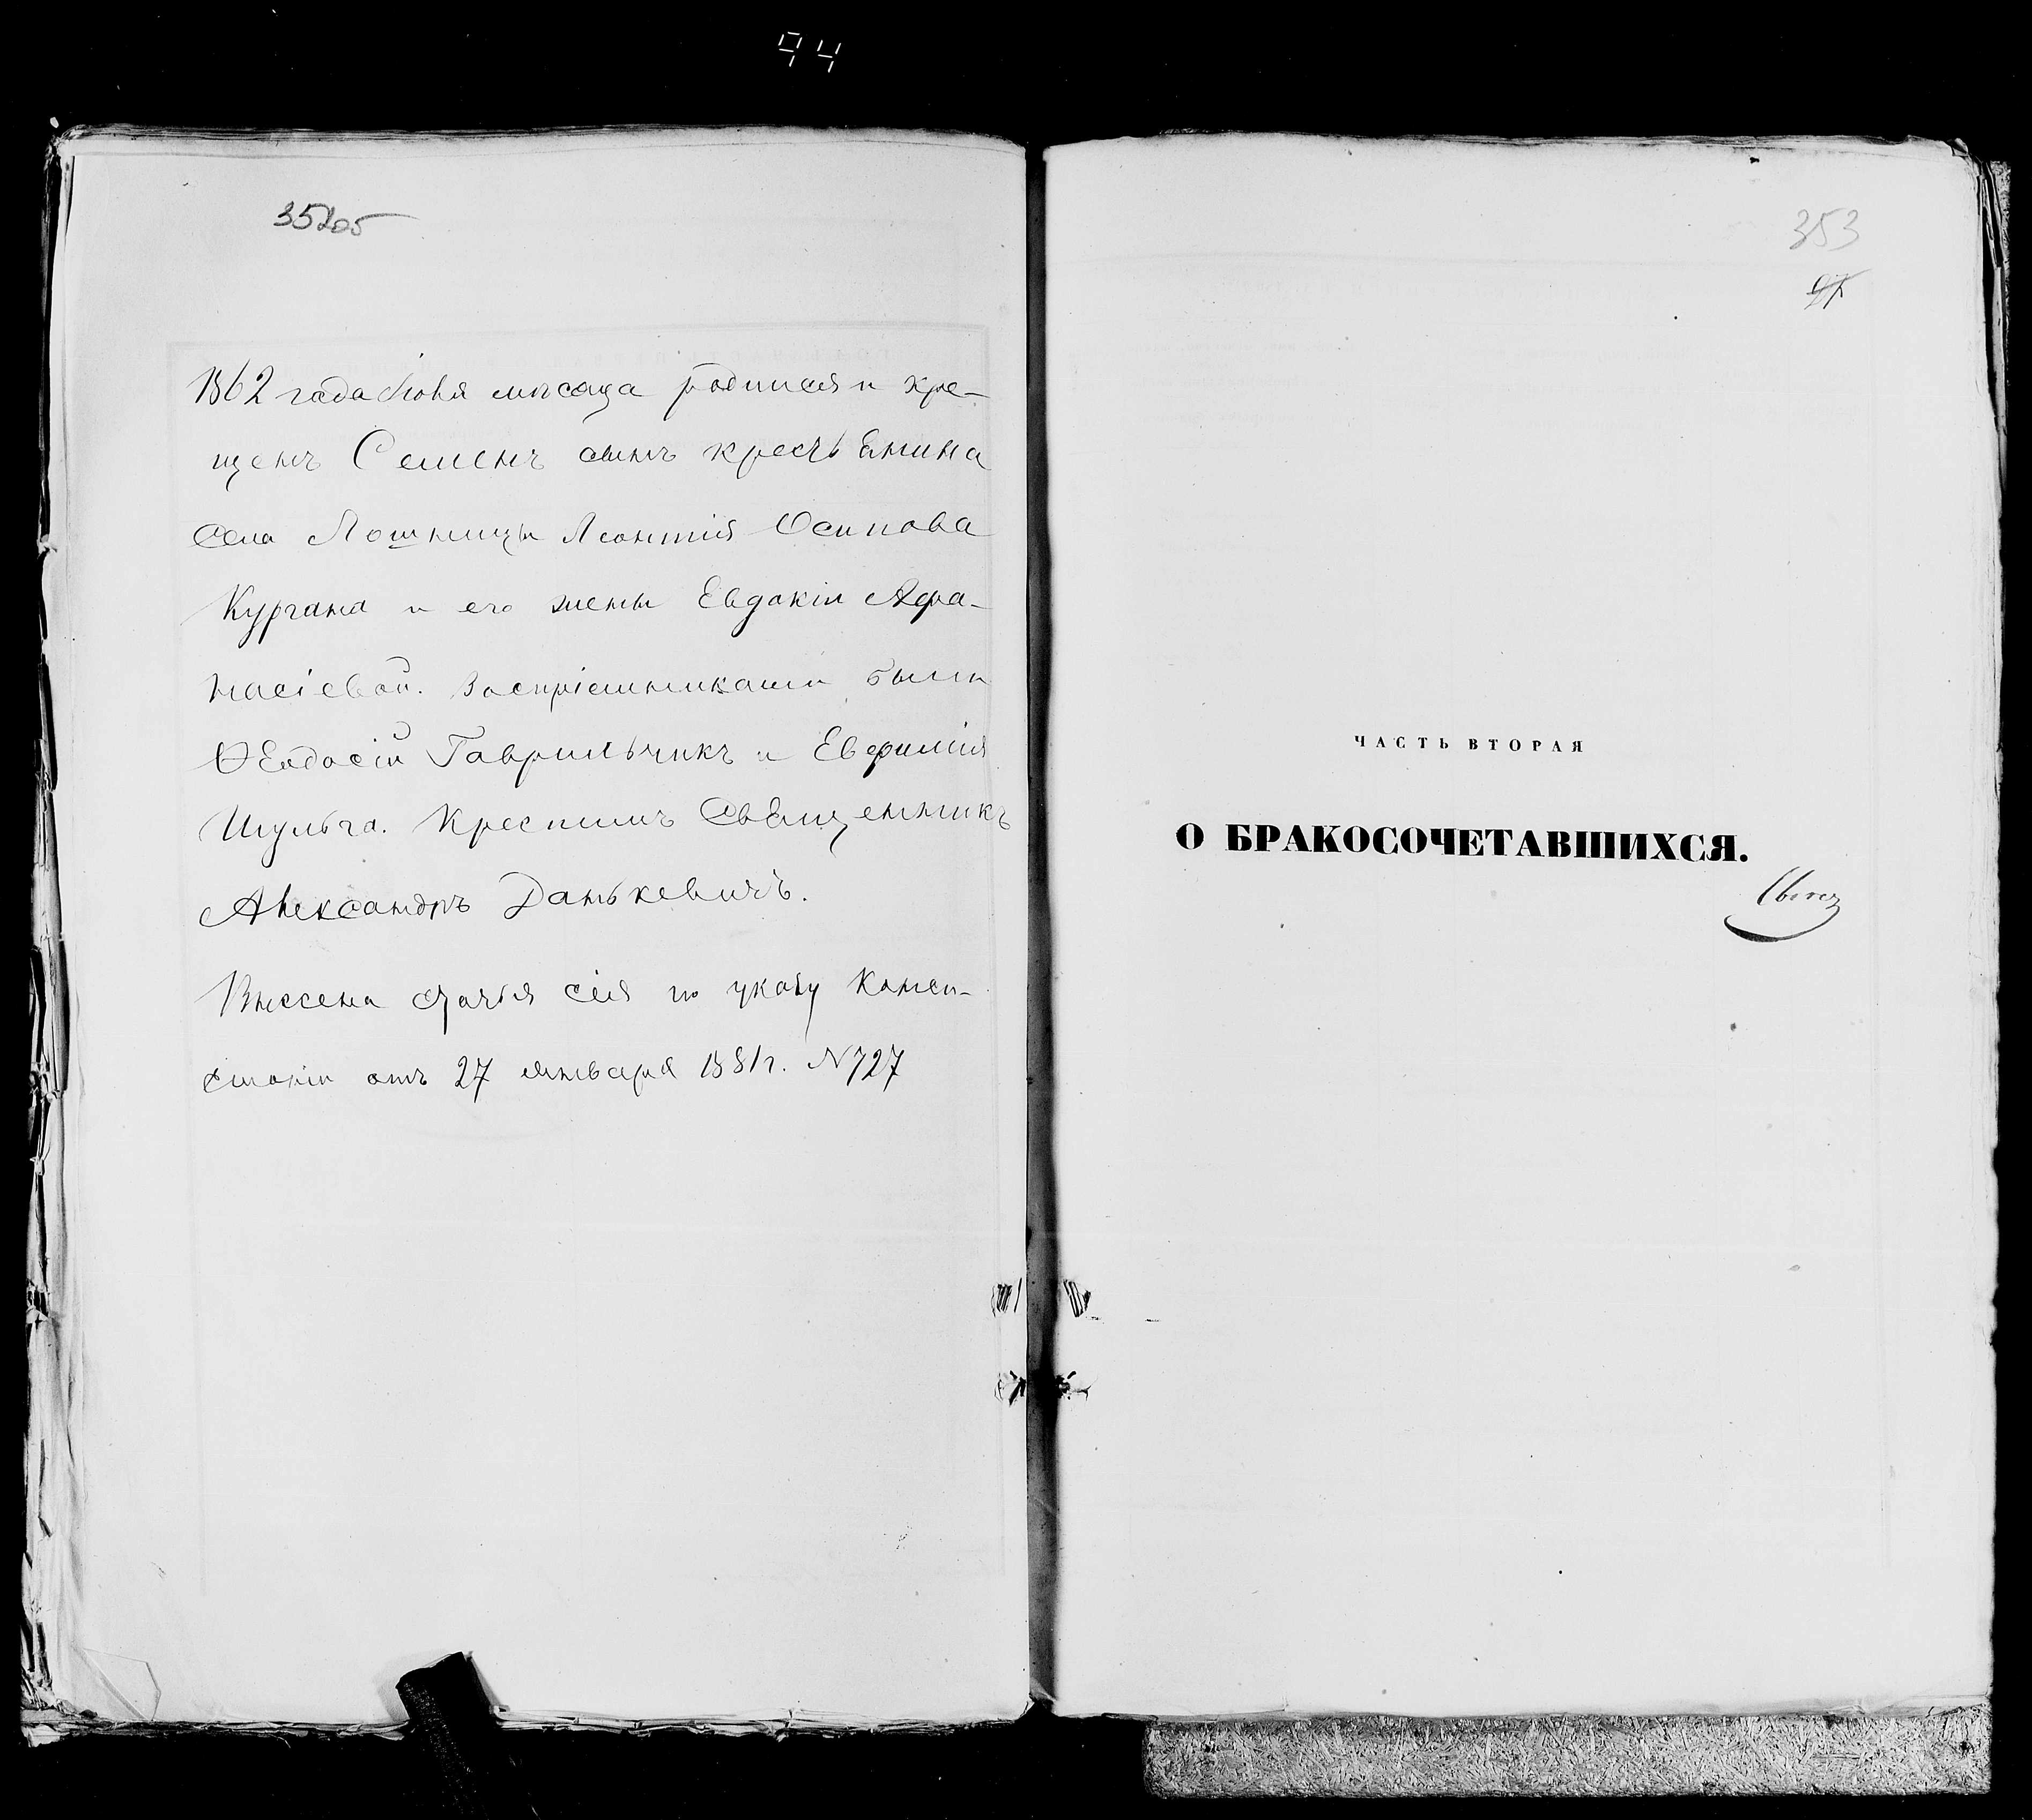 94
352об
1862 года Іюня мѣсяца родился и кре-
щенъ Семенъ сынъ крестьянина
села Лошницы Леонтія Осипова
Кургана и его жены Евдокіи Афа-
насіевой. Воспріемниками были
Ѳеодосій Гаврильчикъ и Евфимія
Шульга. Крестилъ Священникъ
Александръ Данькевичъ.
Внесена статья сія по указу Консис-
торіи отъ 27 января 1881г. N727
353
97
ЧАСТЬ ВТОРАЯ
О БРАКОСОЧЕТАВШИХСЯ.